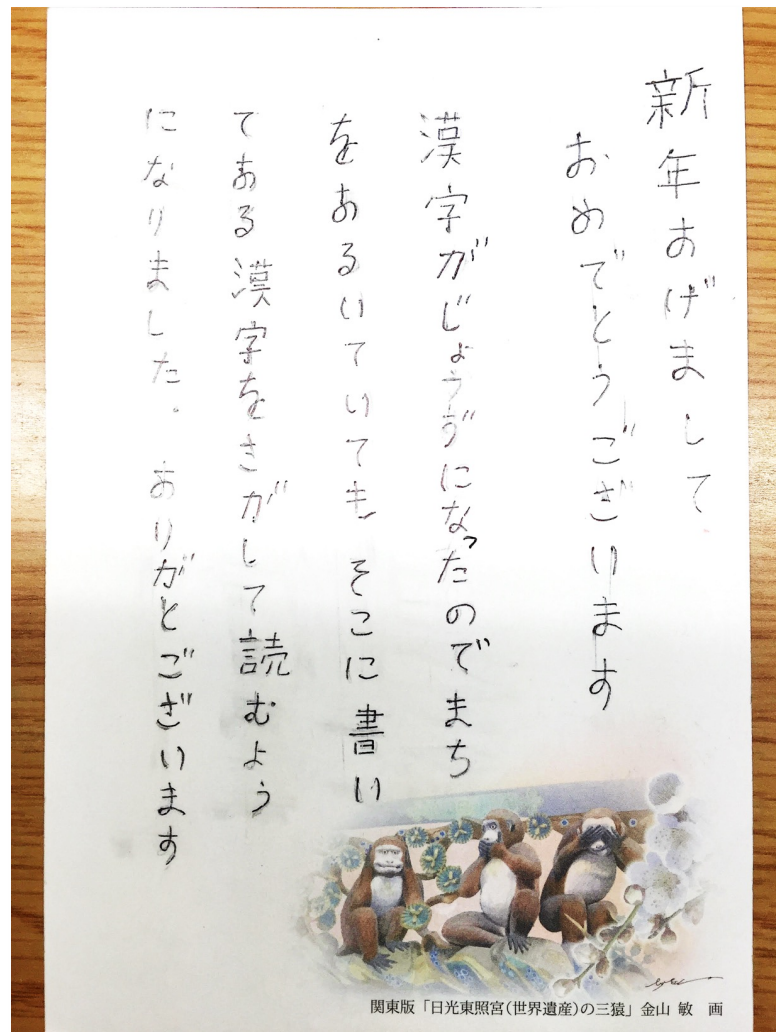 新年あげまして
おめでとうございます
漢字がじょうずになったのでまち
をあるいていても そこに書い
てある漢字をさがして読むよう
になりました。ありがとございます
関東版「日光東照宮(世界遺産)の三猿」金山 敏 画